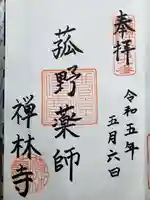 奉拝
令和五年
五月六日
菰野薬師
禅林寺